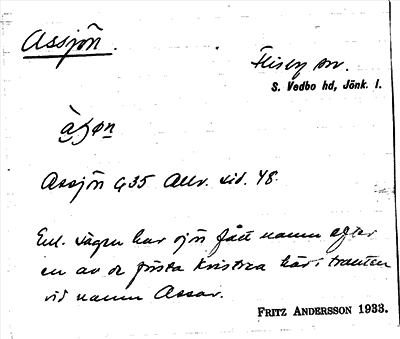 Assjön.
Flisby sn.
S. Vedbo hd, Jönk. l.
Assjön G35 Allv. sid. 48.
Enl. sägen har sjön fått namn efter
en av de första kristna här i trakten
vid namn Assar.
FRITZ ANDERSSON 1933.